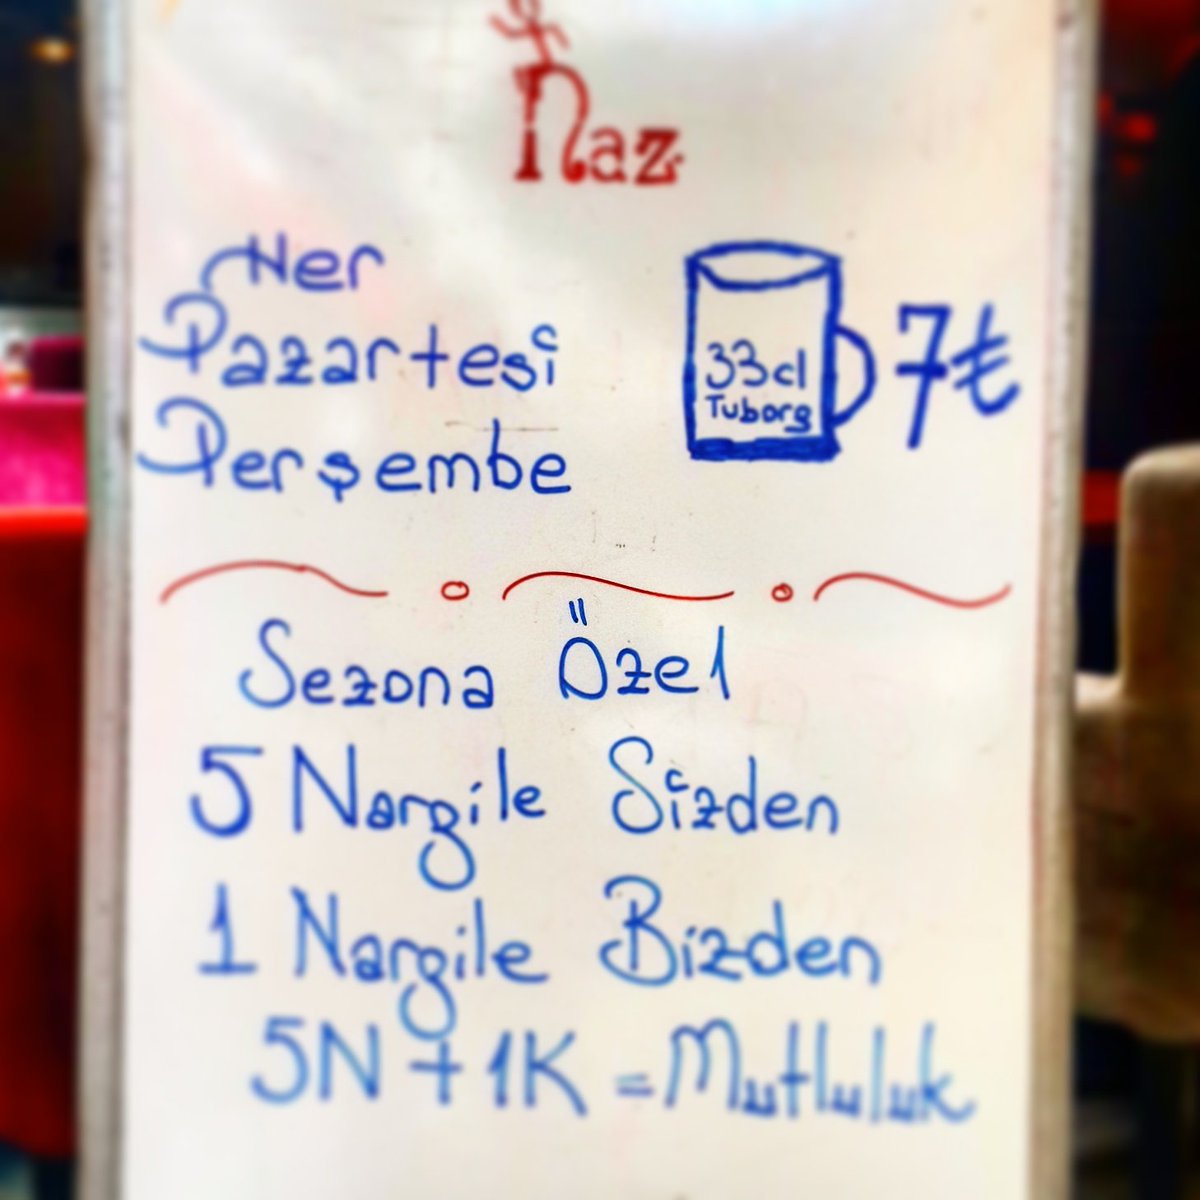 Naz
Her
Pazartesi
Perşembe
33cl
Tuborg
7₺
Sezona Özel
5 Nargile Sizden
1 Nargile Bizden
5N+1K=Mutluluk